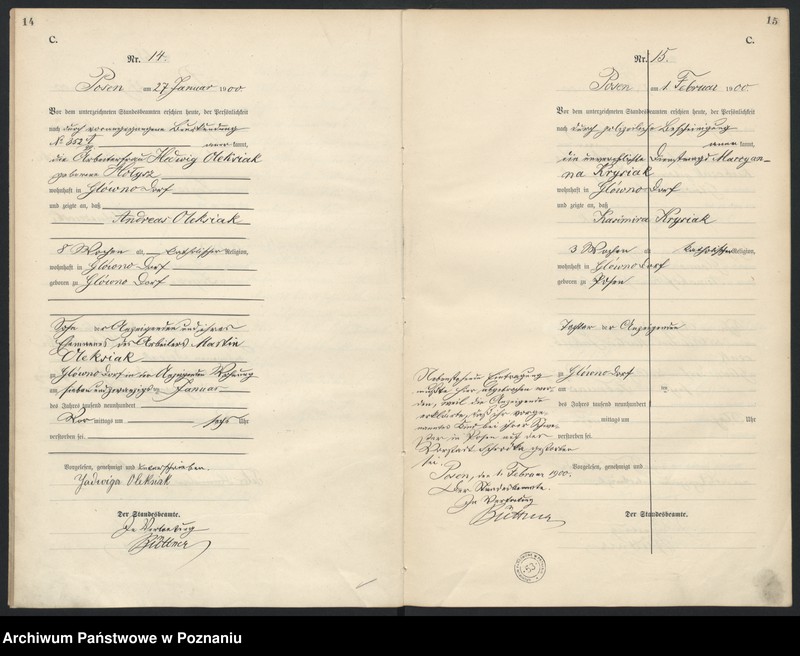 14
C.
Nr. 14.
Posen am 27 Januar 1900
Vor dem unterzeichneten Standesbeamten erschien heute, der Persönlichkeit
nach durch
No 352 kannt,
die Arbeiterfrau Hedwig Oleksiak
geborene
wohnhaft in Glówno Dorf
und zeigte an, daß
Andreas Oleksiak
8 Wochen alt, katholischer Religion,
wohnhaft in Glówno Dorf
geboren zu Glówno Dorf
Sohn der Anzeigenden und ihres
Ehemannes des Arbeiters Martin
Oleksiak
zu Glówno Dorf in der Anzeigenden Wohnung
am siebenundzwanzigsten Januar
des Jahres tausend neunhundert
Vor mittags um sechs Uhr
verstorben sei.
Vorgelesen, genehmigt und unterschrieben.
Jadwiga Oleksiak
Der Standesbeamte.
In Vertretung
Büttner
15
C.
Nr. 15.
Posen am 1. Februar 1900
Vor dem unterzeichneten Standesbeamten erschien heute, der Persönlichkeit
nach durch polizeiliche Bescheinigung
kannt,
die unverehelichte Dienstmagd Maryan-
na Krysiak
wohnhaft in Glówno Dorf
und zeigte an, daß
Kasimira Krysiak
3 Wochen alt katholischer Religion,
wohnhaft in Glówno Dorf
geboren zu Posen
Tochter der Anzeigenden
zu Glówno Dorf
am
des Jahres tausend neunhundert
mittags um Uhr
verstorben sei.
Vorgelesen, genehmigt und
Der Standesbeamte.
Nebenstehende Eintragung
mußte hier abgebrochen wer-
den, weil die Anzeigende
erklärte, daß ihr vorge-
nanntes Kind bei ihrer Schwe-
ster in Posen auf der
Vorstadt Schrodka gestorben
sei.
Posen, den 1. Februar 1900.
Der Standesbeamte.
In Vertretung
Büttner
53
Archiwum Państwowe w Poznaniu